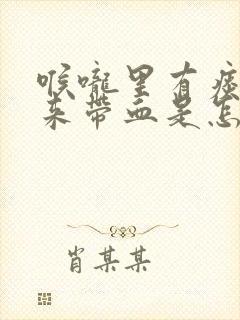 喉咙里有痰
来带血是怎
肖某某